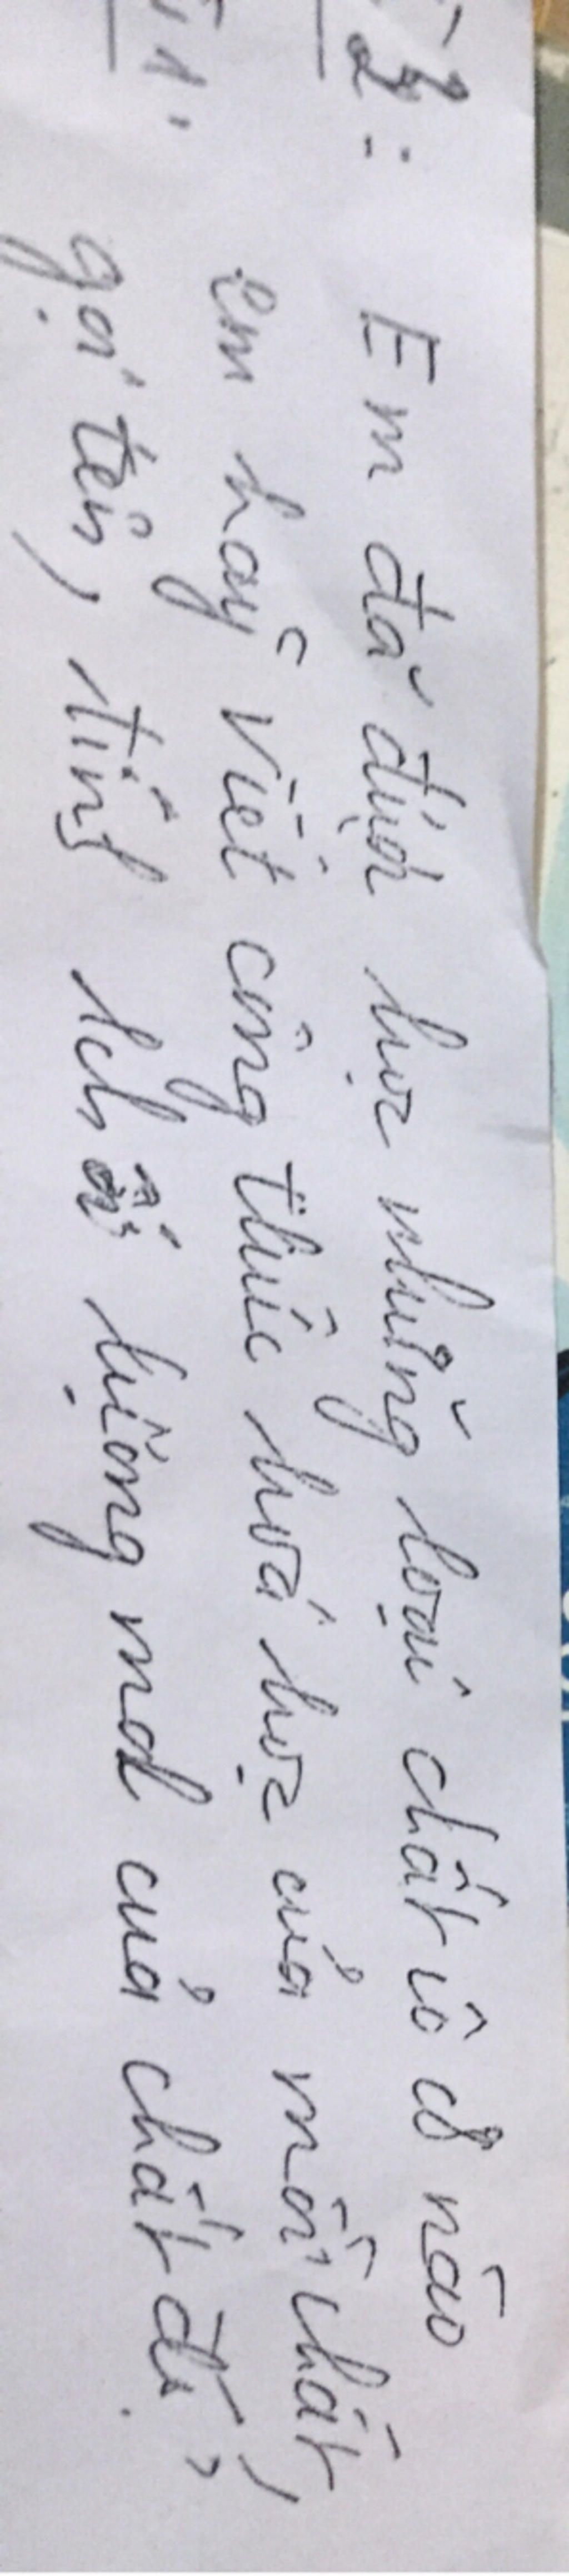 2: Em đã được học những loại chất vô cơ nào
em hãy viết công thức hoá học của mỗi chất,
gọi tên, tính khối lượng mol của chất đó?